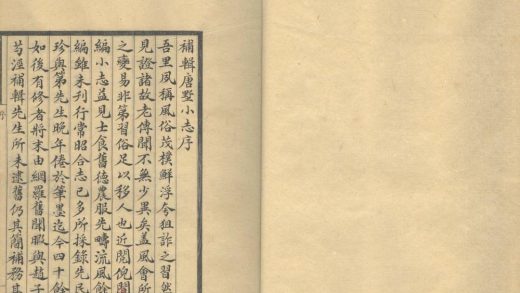 補輯唐墅小志序
吾里風稱風俗茂樸鮮浮夸狙詐之習然
見證諸故老傳聞不無少異矣盖風會所
之變易非第習俗足以移人也近閱倪
編小志益見士食舊德農服先疇流風餘
編雖未刊行常昭合志已多所採錄先民
珍與第先生晚年倦於筆墨迄今四十餘
如後有修者將末由網羅舊聞暇與趙子
芶涇補輯先生所未逮舊仍其簡補務
序